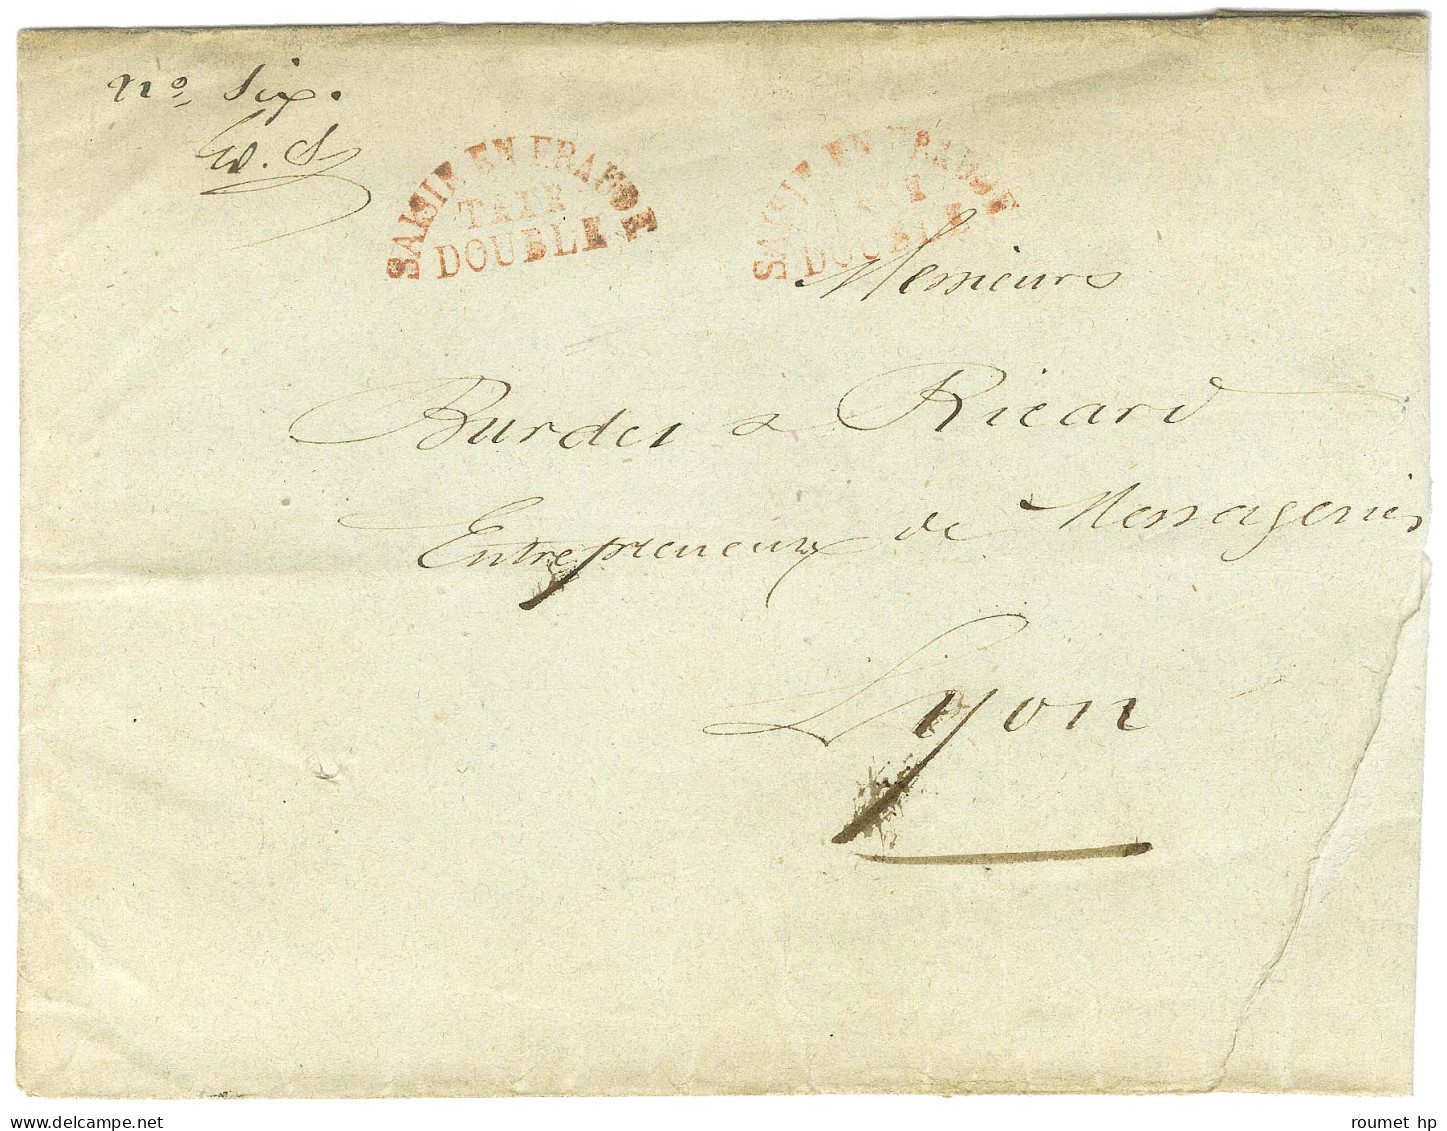 nº six.
SAISIE EN FRAUDE
TAXE
DOUBLE
SAISIE EN FRAUDE
DOUBLE
Messieurs
Burdet & Ricard
Entrepreneurs de Messageries
Lyon
roumet hp